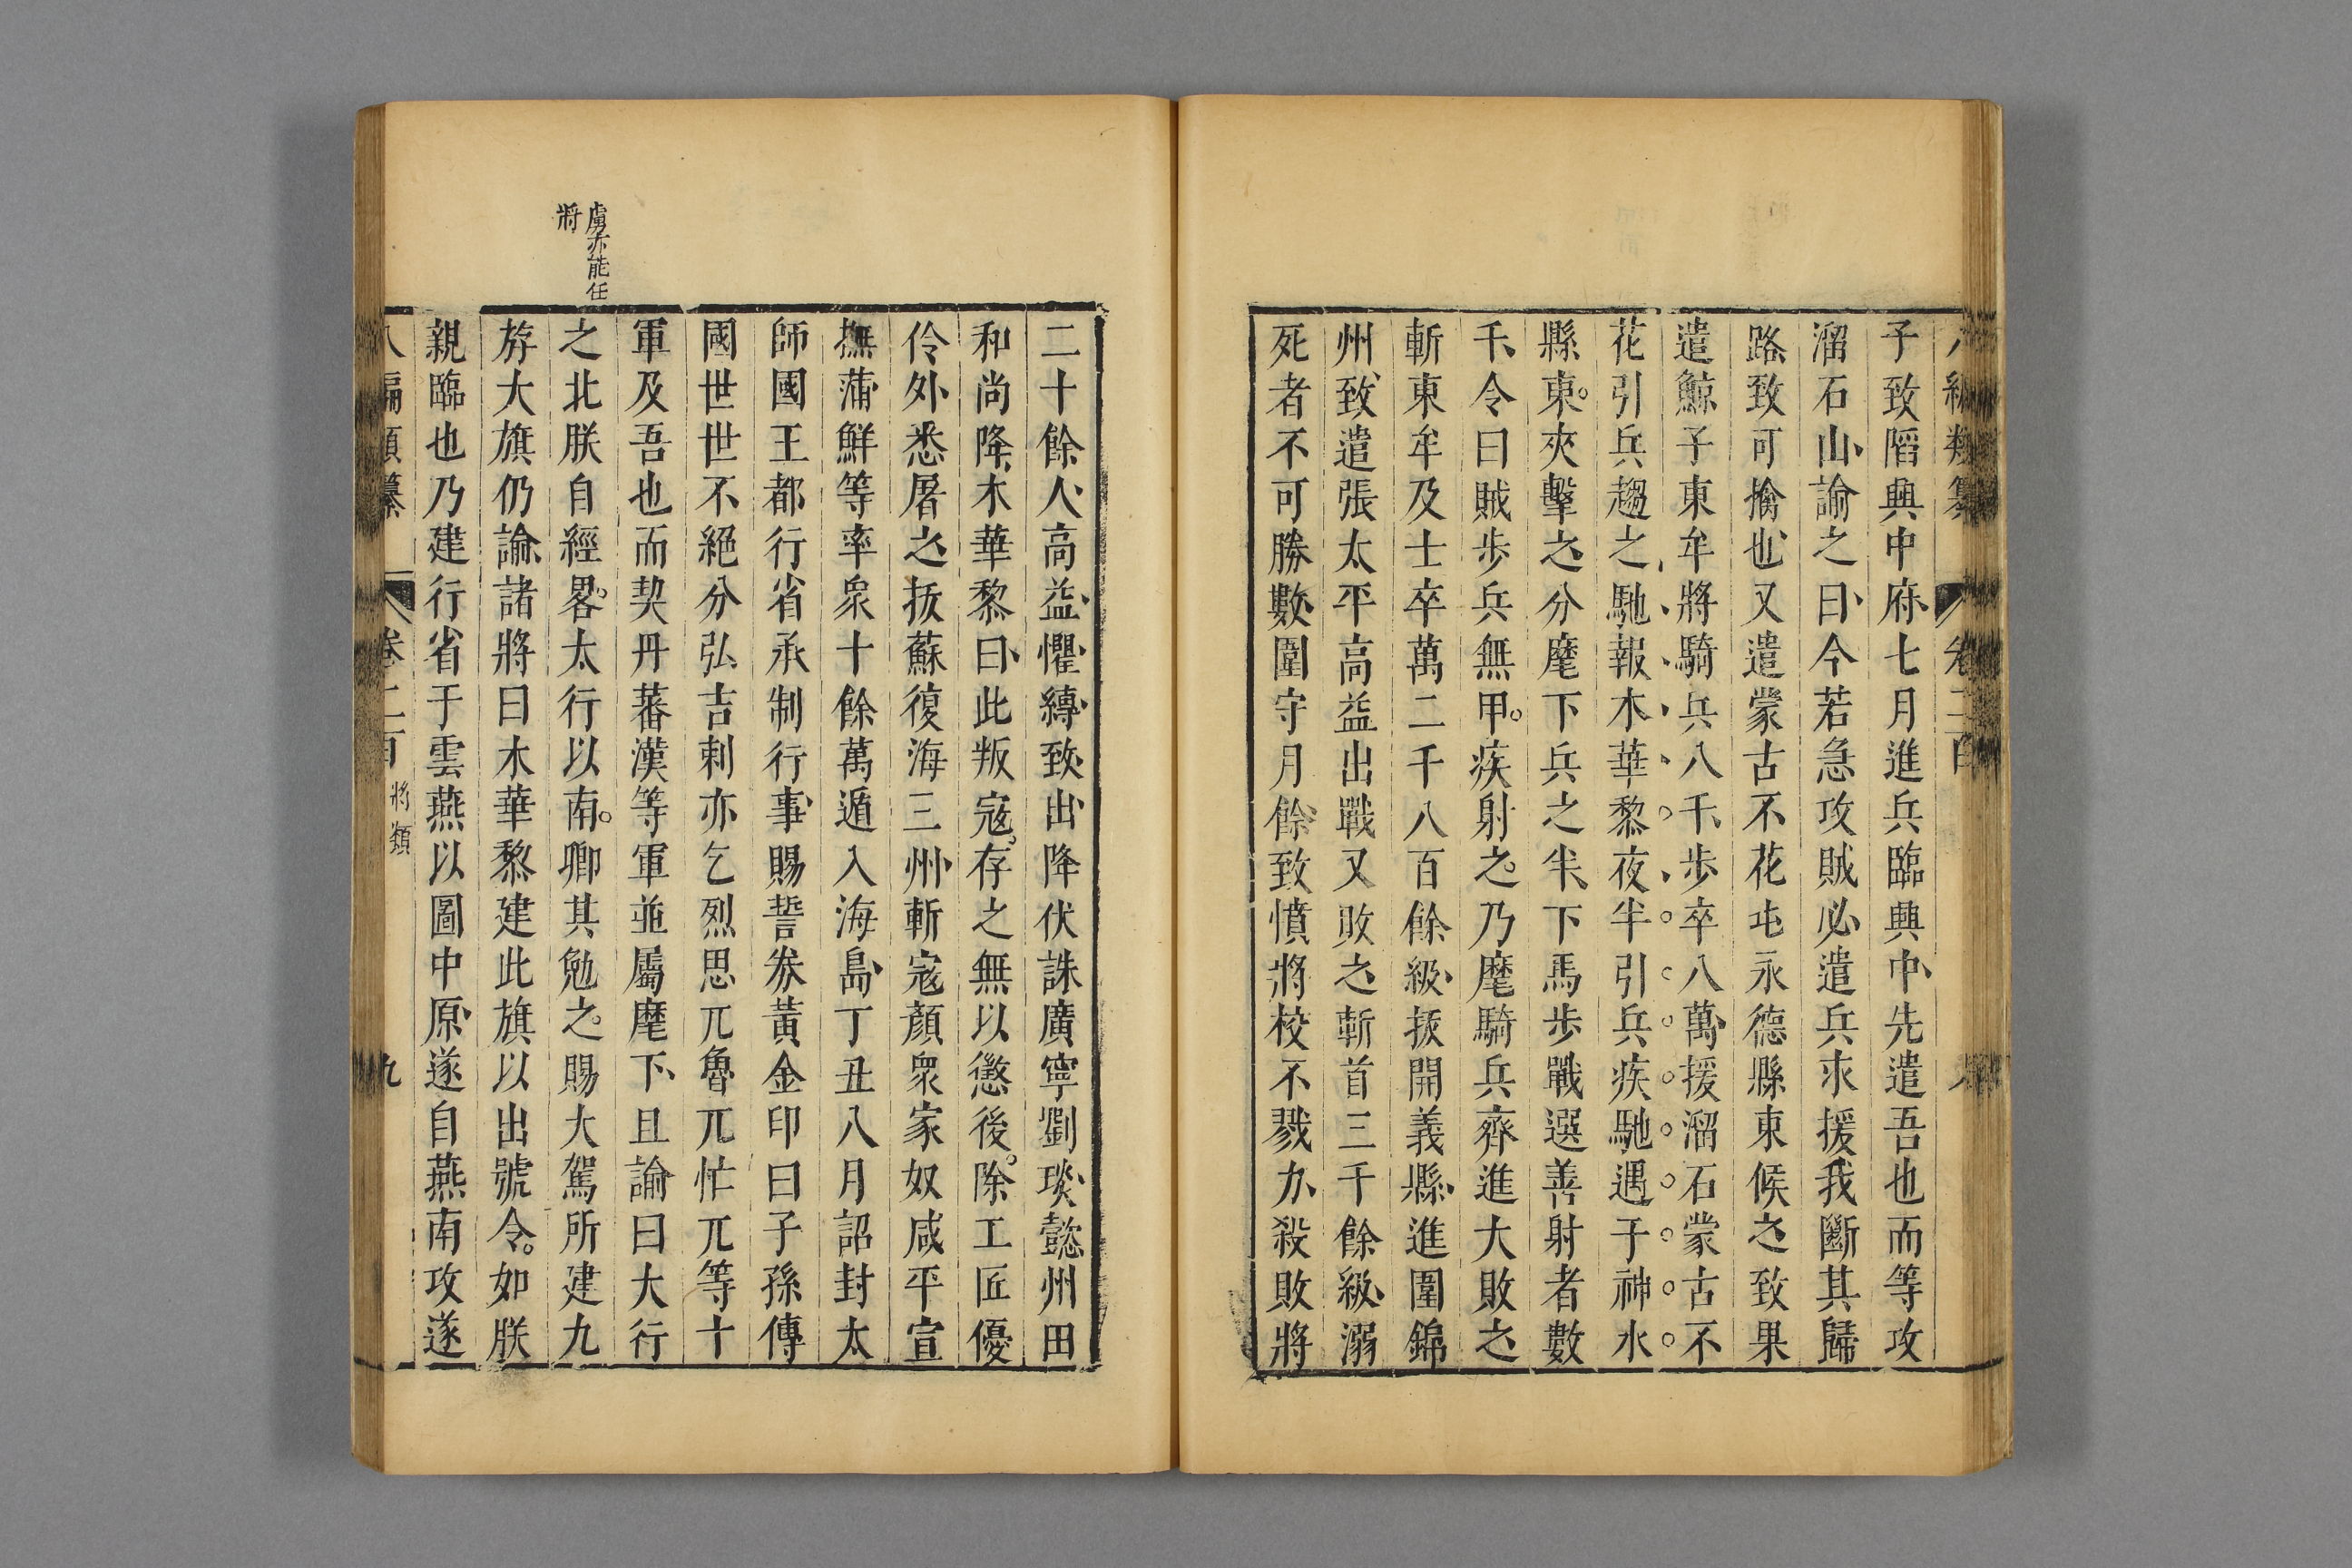 子致陷興中府七月進兵臨興中先遣吾也而等攻
溜石山諭之曰今若急攻賊必遣兵求援我斷其歸
路致可擒也又遣蒙古不花屯永德縣東候之致果
遣鯨子東牟將騎兵八千步卒八萬援溜石蒙古不
花引兵趨之馳報木華黎夜半引兵疾馳遇于神水
縣東夾擊之分麾下兵之半下馬步戰選善射者數
千令曰賊步兵無甲疾射之乃麾騎兵齊進大敗之
斬東牟及士卒萬二千八百餘級拔開義縣進圍錦
州致遣張太平高益出戰又敗之斬首三千餘級溺
死者不可勝數圍守月餘致憤將校不戮力殺敗將
二十餘人高益懼縛致出降伏誅廣寧劉琰懿州田
和尚降木華黎曰此叛寇存之無以懲後除工匠優
伶外悉屠之拔蘇復海三州斬寇顏衆家奴咸平宣
撫蒲鮮等率衆十餘萬遁入海島丁丑八月詔封太
師國王都行省承制行事賜誓券黃金印曰子孫傳
國世世不絕分弘吉剌亦乞烈思兀魯兀忙兀等十
軍及吾也而契丹蕃漢等軍並屬麾下且諭曰大行
虜亦能任
將
之北朕自經畧太行以南卿其勉之賜大駕所建九
斿大旗仍諭諸將曰木華黎建此旗以出號令如朕
親臨也乃建行省于雲燕以圖中原遂自燕南攻遂
卷二百 將類 九